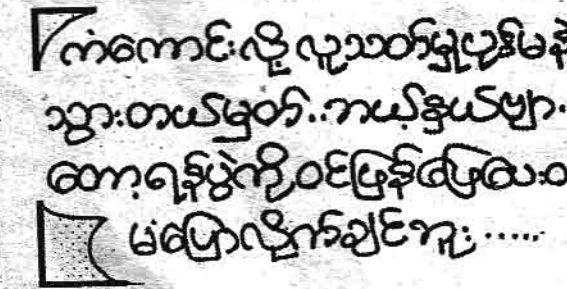 ကံကောင်းလို့ လူသတ်မှုပုဒ်မနဲ
သွားတယ်မှတ်..ဘယ့်နှယ်ဗျာ.
တော့ရန်ပွဲကို ဝင်ဖြန်ဖြေပေးဝ
မပြောလိုက်ချင်ဘူး .....